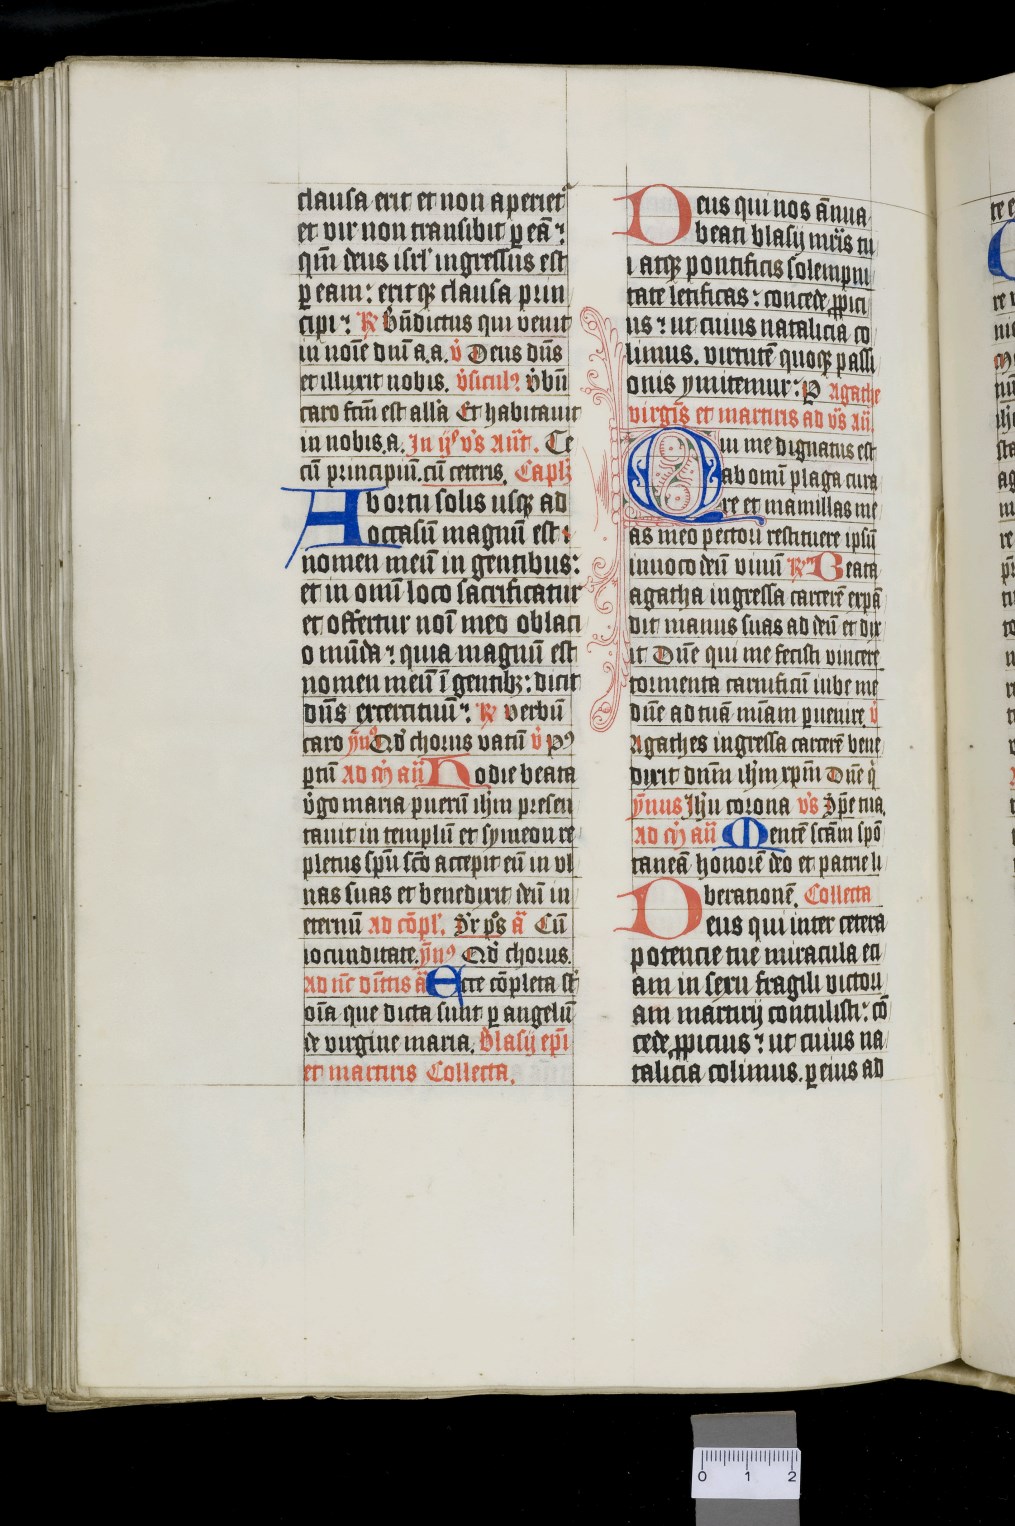 clausa erit et non aperiet᷑
et vir non transibit ꝑ eā ⁊
qm̄ deus isrl' ingressus est
ꝑ eam : erit qꝫ clausa prin
cipi ⁊ ℟ bn̄dictus qui venit
in noīe dnī a.a. v̓ Deus dn̄s
et illuxit nobis. v̓sicul⁹ v̓bū
caro fc̄m est all'a Et habitauit
in nobis.a. In ij⁰ v̓s An̄t. Te
cū principiū. cū ceteris. Capl'ꝫ
A b ortu solis usqꝫ ad
occasū magnū est
nomen meū in gentibus :
et in om̄i loco sacrificatur
et offertur noī meo oblaci
o mūda ⁊ quia magnū est
nomen meū ī gentibꝫ : dicit
dn̄s exercituū ⁊ ℟ verbū
caro ẏn⁹ Qd̓ chorus vatū v̓ P⁹
ptū Ad m̄ an̄ Hodie beata
v̓go maria puerū ihm presen
tauit in templū et symeon re
pletus spū scō accepit eū in vl
nas suas et benedixit deū in
eternū Ad cōpl'. sr̄ ps̄ ā Cū
iocunditate. ẏn⁹ Qd̓ chorus.
Ad nc̄ dīttis ā Ecce cōpleta st̄
oīa que dicta sunt ꝑ angelū
de virgine maria. Blasij ep̄i
et martiris Collecta.
D eus qui nos ānua
beati blasij mr̄is tu
i atqꝫ pontificis solempni
tate letificas : concede ꝓpici
us ⁊ ut cuius natalicia co
limus. virtutē quoqꝫ passi
onis ymitemur : P Agathe
virgīs et martiris ad v̓s an̄.
Q ui me dignatus est
ab omī plaga cura
re et mamillas me
as meo pectori restituere ipsū
inuoco deū viuū ℟ Beata
agatha ingressa carcerē expā
dit manus suas ad deū et dix
it Dn̄e qui me fecisti vincere
tormenta carnificū iube me
dn̄e ad tuā mīam ꝑuenire. v̓
Agathes ingressa carcerē bene
dixit dnm ihm xpm Dn̄e q̄
ẏnus Jhu corona v̓s Spe tua.
Ad m̄ an̄ Mentē scām spō
taneā honorē deo et patrie li
berationē. Collecta
D eus qui inter cetera
potencie tue miracula eti
am in sexu fragili victori
am martirij contulisti : cō
cede ꝓpicius ⁊ ut cuius na
talicia colimus. ꝑ eius ad
0 1 2